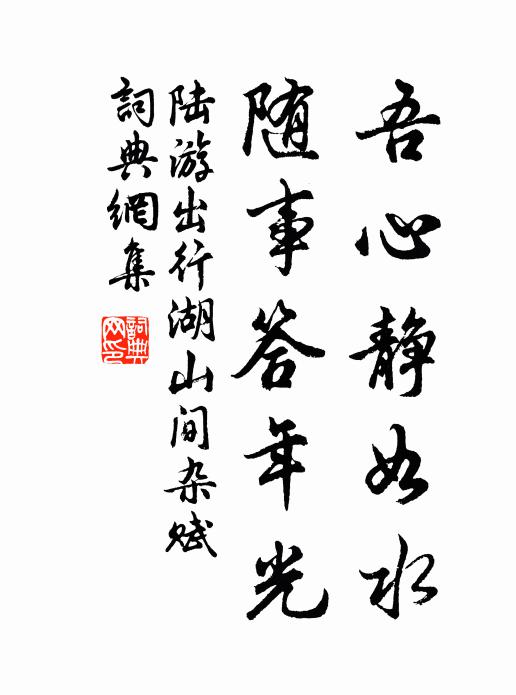 吾心静如水
随事答年光
陆游出行湖山间杂赋
詞典網集
詞典网印